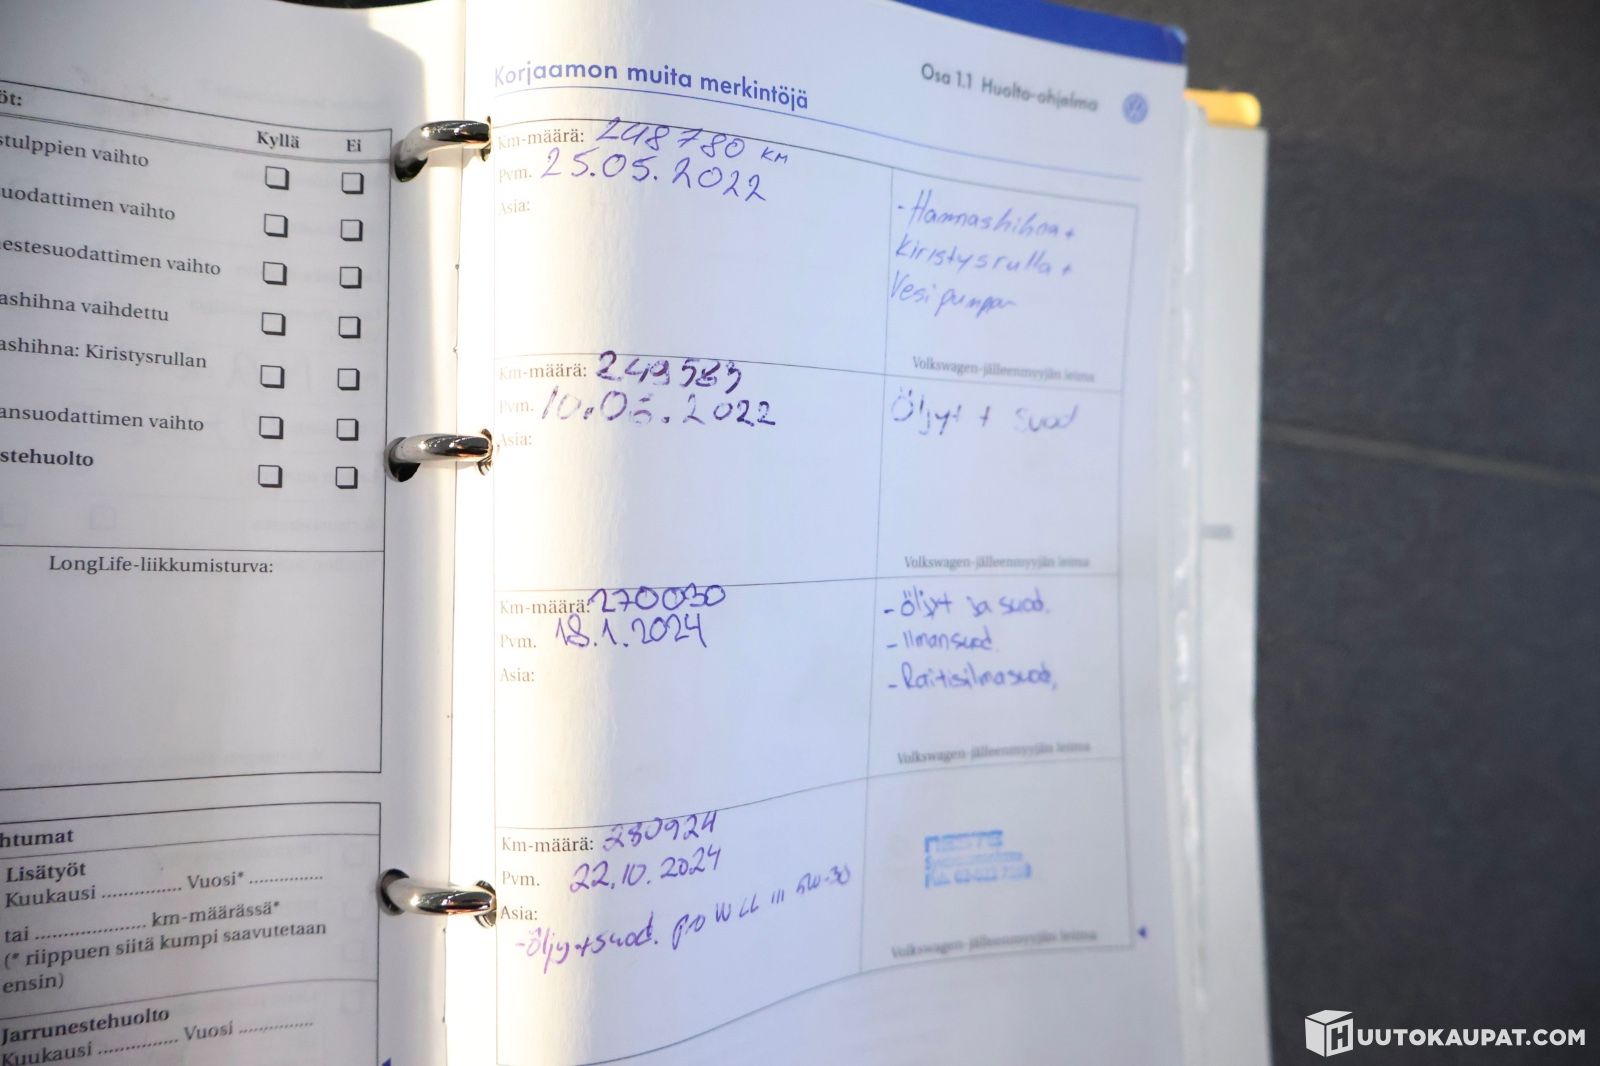 öt:
Kyllä Ei
stulppien vaihto
uodattimen vaihto
estesuodattimen vaihto
ashihna vaihdettu
ashihna: Kiristysrullan
ansuodattimen vaihto
stehuolto
LongLife-liikkumisturva:
htumat
Lisätyöt
Kuukausi ............... Vuosi* ..............
tai ..................... km-määrässä*
(* riippuen siitä kumpi saavutetaan
ensin)
Jarrunestehuolto
Kuukausi ............... Vuosi ..............
Osa 1.1 Huolto-ohjelma
Korjaamon muita merkintöjä
Km-määrä: 248 780 KM
Pvm. 25.05.2022
Asia:
- Hammashihna +
Kiristysrulla +
Vesipumppu
Volkswagen-jälleenmyyjän leima
Km-määrä: 249583
Pvm. 10.06.2022
Asia:
Öljyt + suod
Volkswagen-jälleenmyyjän leima
Km-määrä: 270030
Pvm. 18.1.2024
Asia:
- Öljyt ja suod.
- Ilmansuod.
- Raitisilmasuod.
Volkswagen-jälleenmyyjän leima
Km-määrä: 280924
Pvm. 22.10.2024
Asia:
-Öljy+suod. pro W LL III 5W-30
Volkswagen-jälleenmyyjän leima
HUUTOKAUPAT.COM